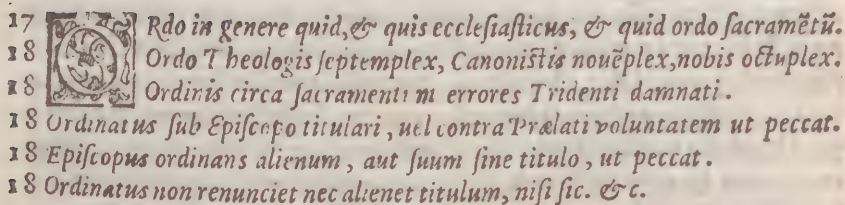 17 ORdo in genere quid, & quis ecclesiasticus, & quid ordo sacramētū.
18 Ordo Theologis septemplex, Canonistis nouēplex, nobis octuplex.
18 Ordinis circa sacramentum errores Tridenti damnati.
18 Ordinatus sub Episcopo titulari, uel contra Prælati voluntatem ut peccat.
18 Episcopus ordinans alienum, aut suum sine titulo, ut peccat.
18 Ordinatus non renunciet nec alienet titulum, nisi sic. &c.